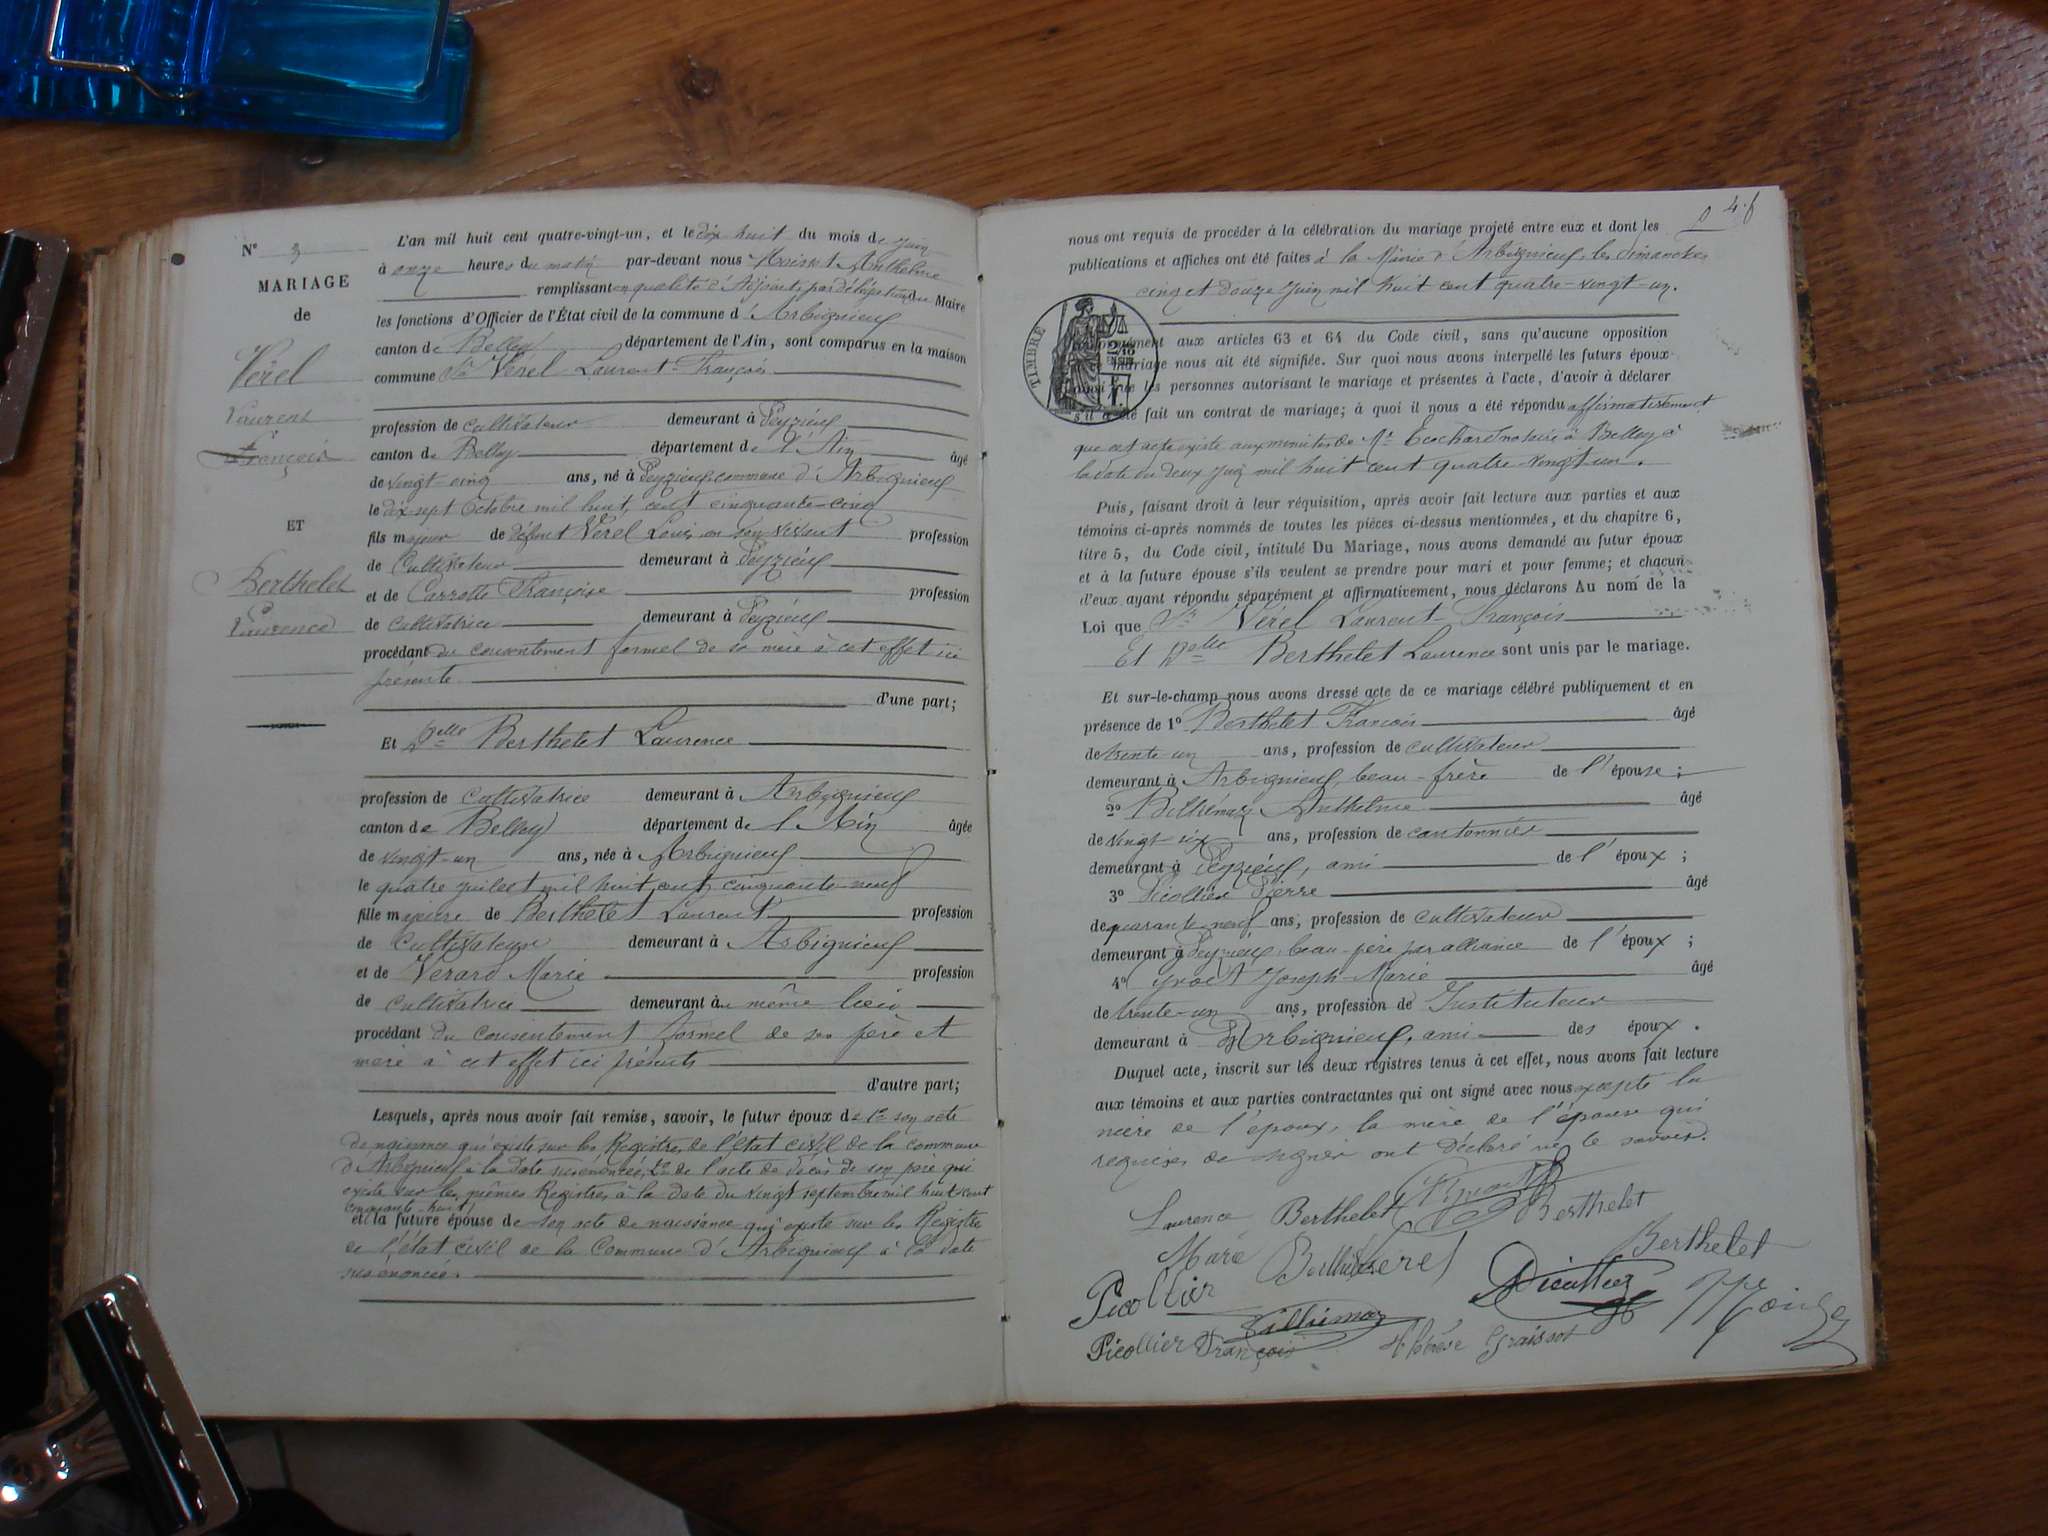 N° 3
MARIAGE
de
Vérel
Laurent
François
ET
Berthelet
Laurence
L'an mil huit cent quatre-vingt-un, et le dix huit du mois de Juin
à onze heures du matin par-devant nous Anthelme
remplissant en qualité d'Adjoint, par délégation du Maire
les fonctions d'Officier de l'État civil de la commune d'Arbignieu
canton de Belley département de l'Ain, sont comparus en la maison
commune Sr Vérel Laurent-François
profession de cultivateur demeurant à Peyzieu
canton de Belley département de l'Ain âgé
de vingt-cinq ans, né à Peyzieu commune d'Arbignieu
le dix-sept Octobre mil huit cent cinquante-cinq
fils majeur de défunt Vérel Louis en son vivant profession
de Cultivateur demeurant à Peyzieu
et de Carrotte Françoise profession
de cultivatrice demeurant à Peyzieu
procédant du consentement formel de sa mère à cet effet ici
présente
d'une part;
Et Delle Berthelet Laurence
profession de cultivatrice demeurant à Arbignieu
canton de Belley département de l'Ain âgée
de vingt-un ans, née à Arbignieu
le quatre juillet mil huit cent cinquante-neuf
fille majeure de Berthelet Laurent profession
de Cultivateur demeurant à Arbignieu
et de Vérard Marie profession
de cultivatrice demeurant au même lieu
procédant du consentement formel de ses père et
mère à cet effet ici présents
d'autre part;
Lesquels, après nous avoir fait remise, savoir, le futur époux de 1° son acte
de naissance qui existe sur les Registres de l'état civil de la commune
d'Arbignieu à la date susénoncée, 2° de l'acte de décès de son père qui
existe sur les mêmes Registres à la date du vingt septembre mil huit cent
cinquante-huit
et la future épouse de son acte de naissance qui existe sur les Registres
de l'état civil de la Commune d'Arbignieu à la date
susénoncée.
nous ont requis de procéder à la célébration du mariage projeté entre eux et dont les
publications et affiches ont été faites à la Mairie d'Arbignieu, les dimanches
cinq et douze juin mil huit cent quatre-vingt-un.
TIMBRE
aux articles 63 et 64 du Code civil, sans qu'aucune opposition
mariage nous ait été signifiée. Sur quoi nous avons interpellé les futurs époux
les personnes autorisant le mariage et présentes à l'acte, d'avoir à déclarer
s'il a été fait un contrat de mariage; à quoi il nous a été répondu affirmativement
que cet acte existe aux minutes de Me Ecochard notaire à Belley à
la date du deux juin mil huit cent quatre-vingt un.
Puis, faisant droit à leur réquisition, après avoir fait lecture aux parties et aux
témoins ci-après nommés de toutes les pièces ci-dessus mentionnées, et du chapitre 6,
titre 5, du Code civil, intitulé Du Mariage, nous avons demandé au futur époux
et à la future épouse s'ils veulent se prendre pour mari et pour femme; et chacun
d'eux ayant répondu séparément et affirmativement, nous déclarons Au nom de la
Loi que Sr Vérel Laurent François
Et Delle Berthelet Laurence sont unis par le mariage.
Et sur-le-champ nous avons dressé acte de ce mariage célébré publiquement et en
présence de 1° Berthelet François âgé
de trente un ans, profession de cultivateur
demeurant à Arbignieu, beau-frère de l'épouse;
2° Billiémaz Anthelme âgé
de vingt six ans, profession de cantonnier
demeurant à Peyzieu, ami de l'époux;
3° Picollier Pierre âgé
de quarante neuf ans, profession de cultivateur
demeurant à Peyzieu, beau-père par alliance de l'époux;
4° Joseph-Marie âgé
de trente-un ans, profession de Instituteur
demeurant à Arbignieu, ami des époux.
Duquel acte, inscrit sur les deux registres tenus à cet effet, nous avons fait lecture
aux témoins et aux parties contractantes qui ont signé avec nous excepté la
mère de l'époux, la mère de l'épouse qui
requises de signer ont déclaré ne le savoir.
Laurence Berthelet Berthelet
Marie Berthelet Vérel Berthelet
Picollier
Billiémaz
Picollier François